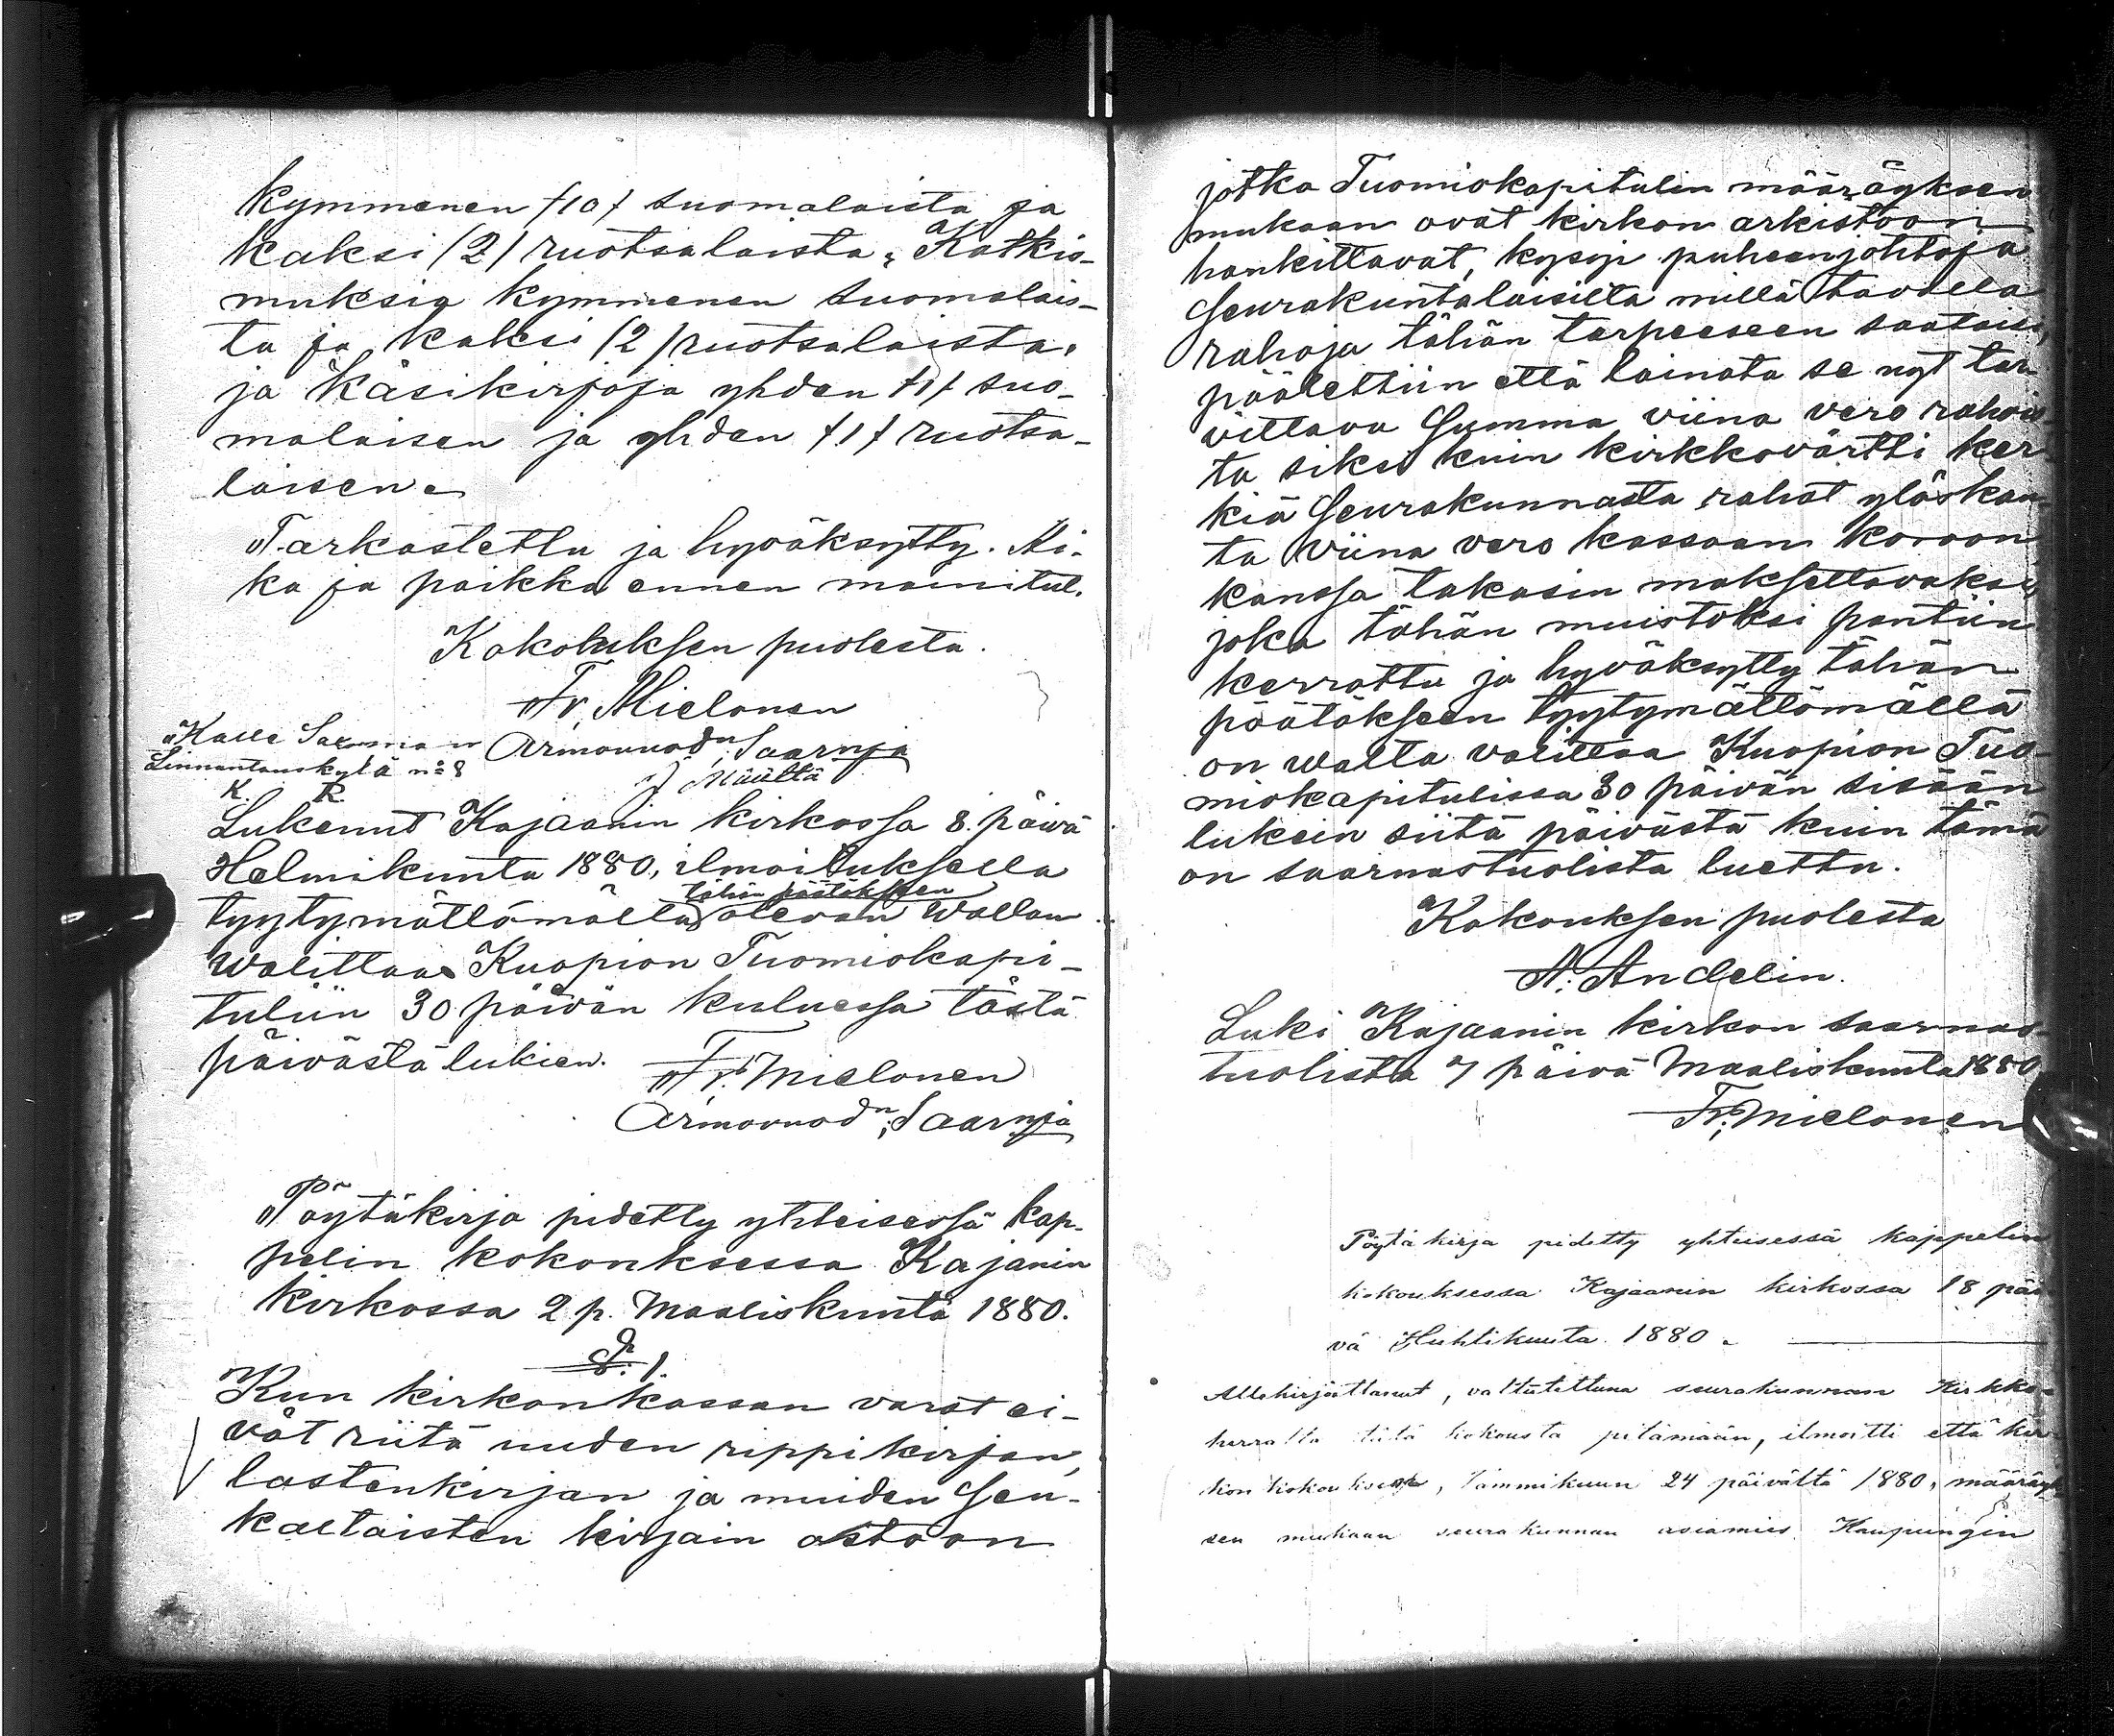 kymmenen /10/ suomalaista ja
kaksi /2/ ruotsalaista, Katkis-
muksia kymmenen suomalais-
ta ja kaksi /2/ ruotsalaista,
ja Käsikirjoja yhden /1/ suo-
malaisen ja yhden /1/ ruotsa-
laisen.
Tarkastettu ja hyväksytty. Ai-
ka ja paikka ennen mainitut.
Kokouksen puolesta.
Fr. Mielonen
Armovuod:n Saarnja
J Määttä
Kalle
Linnantauskylä no 8
K. R.
Lukenut Kajaanin kirkossa 8. päivä
Helmikuuta 1880, ilmoituksella
tähän päätökseen
tyytymättömällä olevan wallan
walittaa Kuopion Tuomiokapi-
tuliin 30 päivän kuluessa tästä
päivästä lukien.
Fr. Mielonen
Armovuod:n Saarnja
Pöytäkirja pidetty yhteisessä kap-
pelin kokouksessa Kajanin
kirkossa 2 p. Maaliskuuta 1880.
§. 1.
Kun kirkonkassan varat ei-
vät riitä uuden rippikirjan,
lastenkirjan ja muiden sen-
kaltaisten kirjain ostoon
jotka Tuomiokapitulin määräyksen
mukaan ovat kirkon arkistoon
hankittavat, kysyi puheenjohtaja
Seurakuntalaisilta millä tavalla
rahoja tähän tarpeeseen saataisi,
päätettiin että lainata se nyt tar-
vittava Summa viina vero rahois-
ta siksi kuin kirkkovärtti ker-
kiä Seurakunnasta rahat ylöskan-
ta viina vero kassaan koron
kanssa takasin maksettavaksi,
joka tähän muistoksi pantiin
kerrottu ja hyväksytty tähän
päätökseen tyytymättömällä
on walta valittaa Kuopion Tuo-
miokapitulissa 30 päivän sisään
lukein siitä päivästä kuin tämä
on saarnastuolista luettu.
Kokouksen puolesta
A. Andelin.
Luki Kajaanin kirkon saarnas-
tuolista 7 päivä Maaliskuuta 1880
Fr. Mielonen
Pöytäkirja pidetty yhteisessä kappelin
kokouksessa Kajaanin kirkossa 18 päi
vä Huhtikuuta 1880.
Allekirjoittanut, valtuutettuna seurakunnan Kirkko-
herralta tätä kokousta pitämään, ilmoitti että kir-
kon kokouksessa, Tammikuun 24 päivältä 1880, määräyk
sen mukaan seurakunnan asiamies Kaupungin